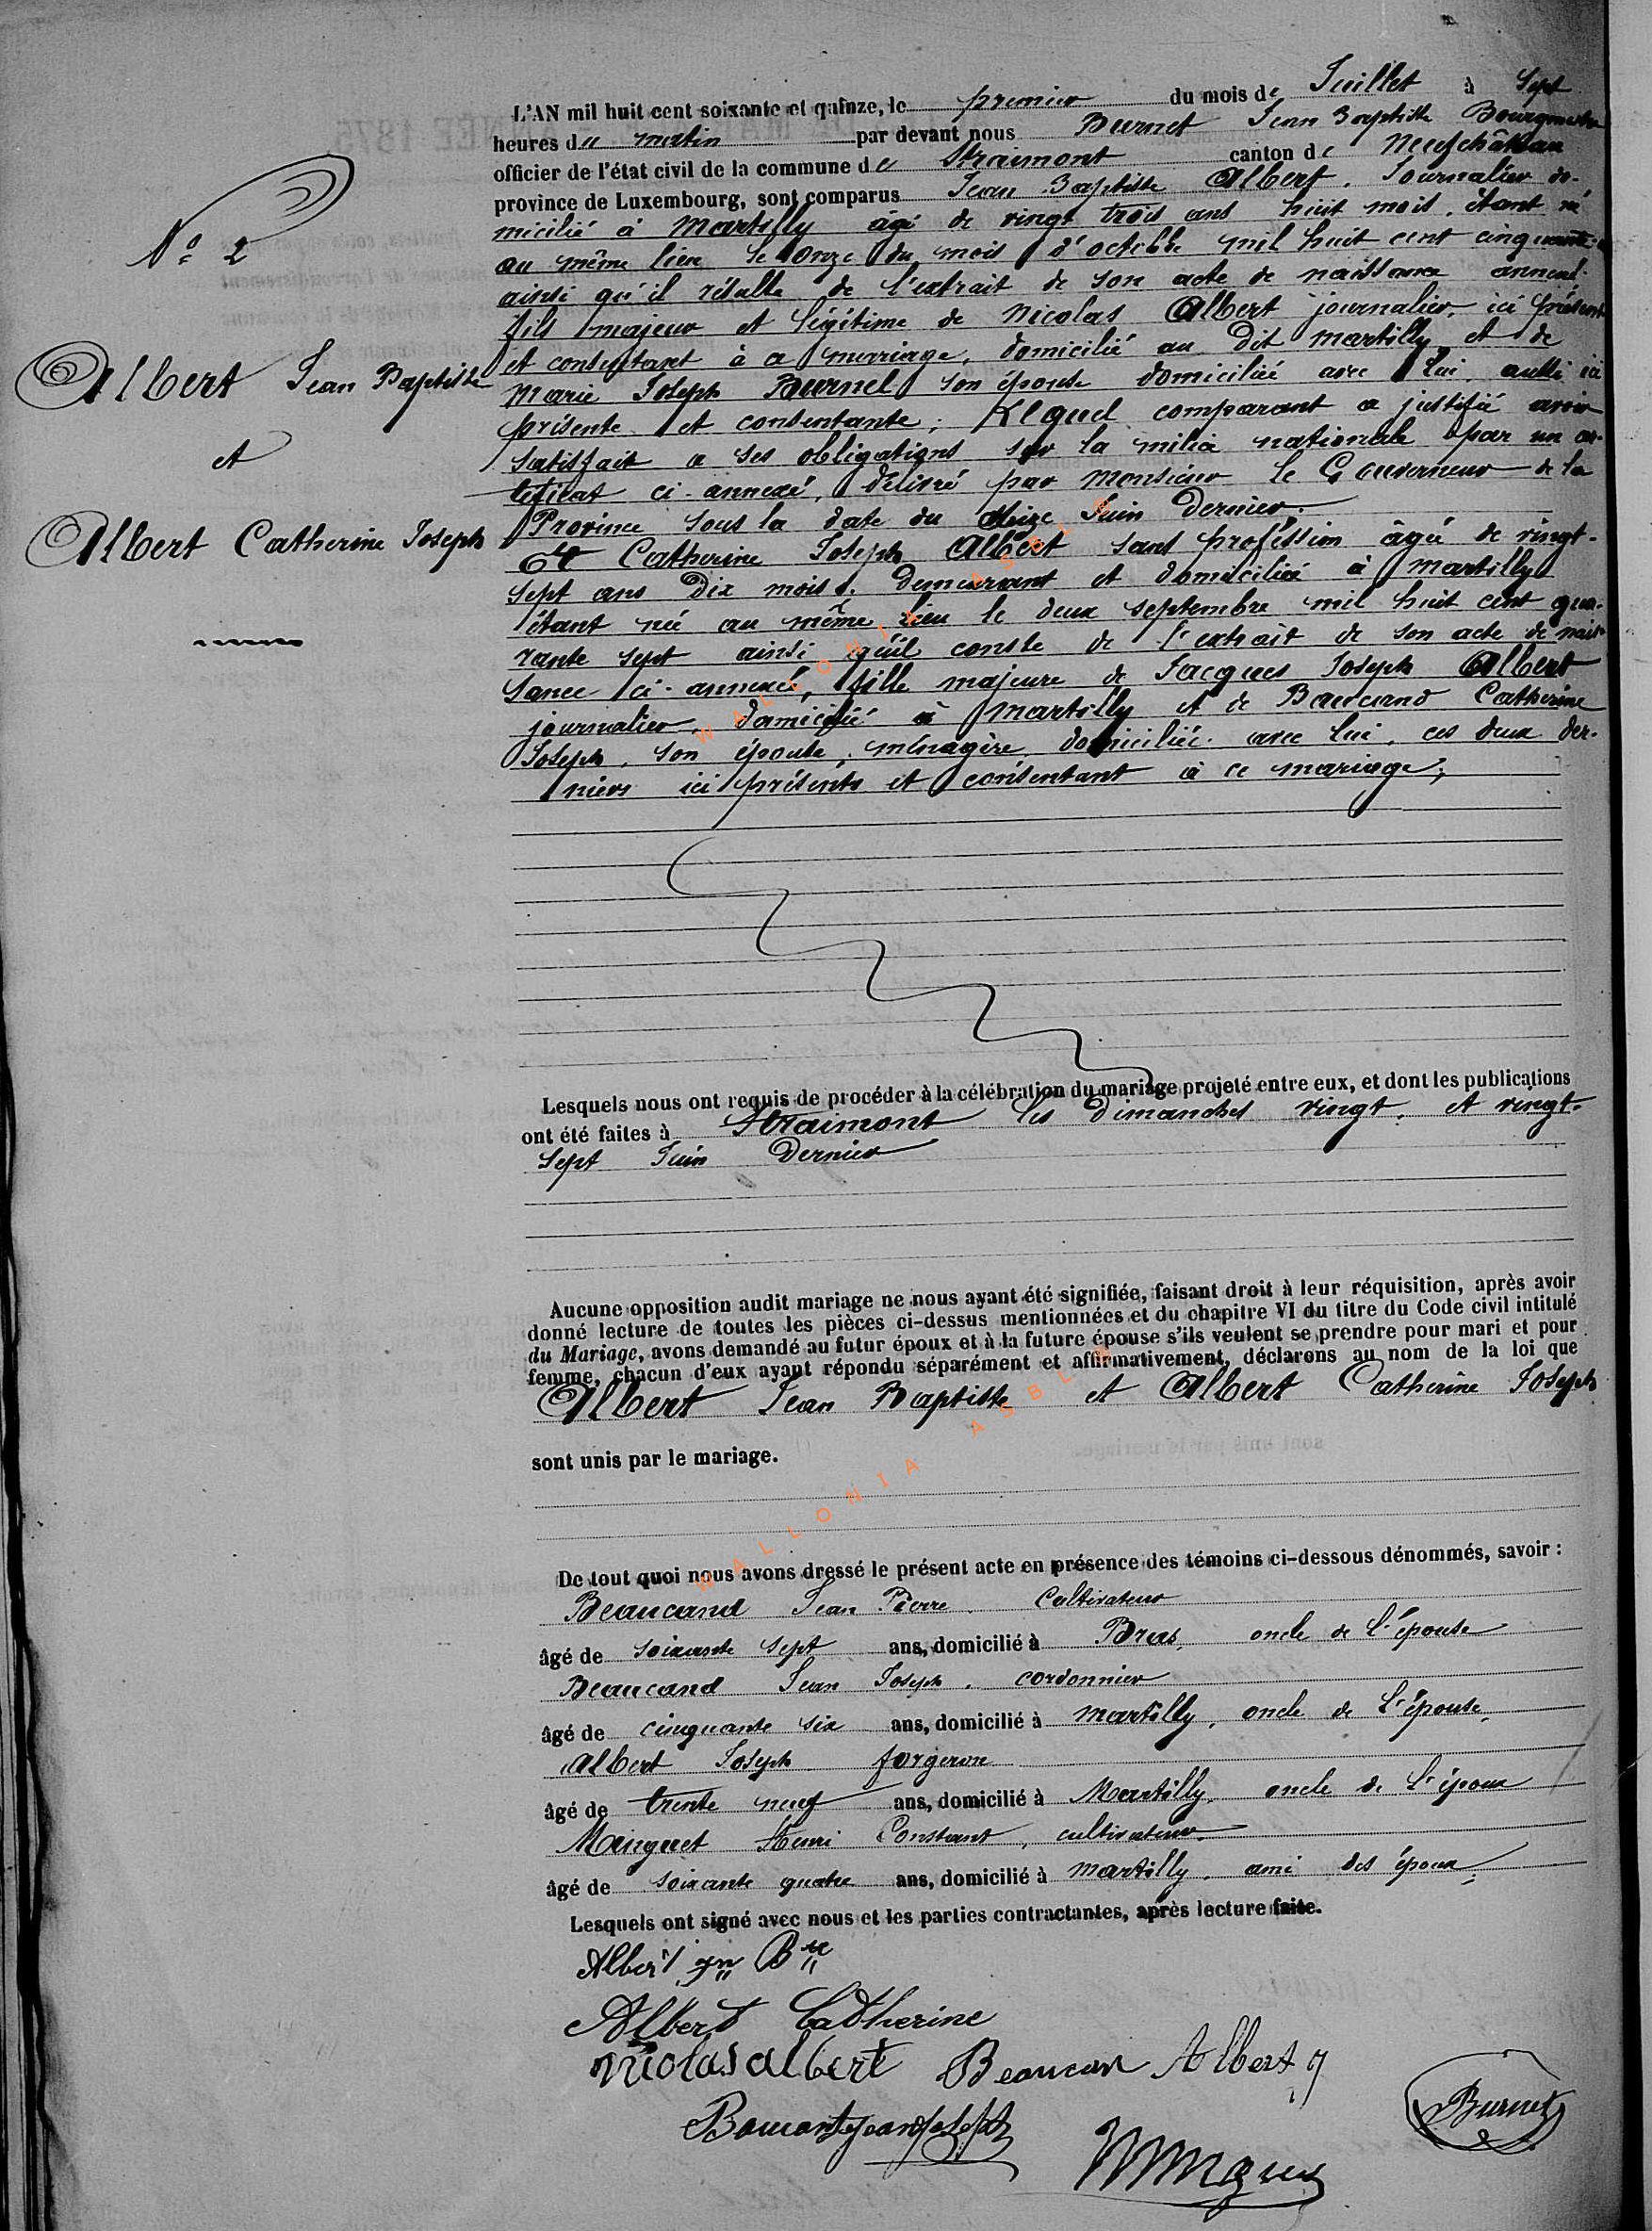 L'AN mil huit cent soixante et quinze, le premier du mois de Juillet à Sept
heures du matin par devant nous Burnet Jean Baptiste Bourgmestre
officier de l'état civil de la commune de Straimont canton de Neufchâteau
province de Luxembourg, sont comparus Jean Baptiste Albert. Journalier do-
N° 2
micilié à Martilly âgé de vingt trois ans huit mois, étant né
au même lieu le onze du mois d'octobre mil huit cent cinquante
ainsi qu'il résulte de l'extrait de son acte de naissance annexé.
fils majeur et légitime de Nicolas Albert journalier, ici présent
et consentant à ce mariage, domicilié au Dit Martilly et de
Albert Jean Baptiste
Marie Joseph Burnel son épouse domiciliée avec lui, aussi ici
présente et consentante; Lequel comparant a justifié avoir
et
satisfait a ses obligations sur la milice nationale par un cer-
tificat ci-annexé, délivré par Monsieur le Gouverneur de la
Province sous la date du Juin Dernier.
Albert Catherine Joseph
Et Catherine Joseph Albert sans profession âgée de vingt-
sept ans Dix mois, demeurant et domiciliée à Martilly
étant née au même lieu le deux septembre mil huit cent qua-
rante sept ainsi qu'il conste de l'extrait de son acte de nais-
sance ci-annexé, fille majeure de Jacques Joseph Albert
journalier domicilié à Martilly et de Baucand Catherine
Joseph, son épouse, ménagère domiciliée avec lui, ces deux der-
niers ici présents et consentant à ce mariage;
Lesquels nous ont requis de procéder à la célébration du mariage projeté entre eux, et dont les publications
ont été faites à Straimont les Dimanches vingt, et vingt-
sept Juin Dernier
Aucune opposition audit mariage ne nous ayant été signifiée, faisant droit à leur réquisition, après avoir
donné lecture de toutes les pièces ci-dessus mentionnées et du chapitre VI du titre du Code civil intitulé
du Mariage, avons demandé au futur époux et à la future épouse s'ils veulent se prendre pour mari et pour
femme, chacun d'eux ayant répondu séparément et affirmativement, déclarons au nom de la loi que
Albert Jean Baptiste et Albert Catherine Joseph
sont unis par le mariage.
De tout quoi nous avons dressé le présent acte en présence des témoins ci-dessous dénommés, savoir :
Beaucand Jean Pierre. Cultivateur
âgé de soixante sept ans, domicilié à Bras, oncle de l'épouse
Beaucand Jean Joseph, cordonnier
âgé de cinquante six ans, domicilié à Martilly, oncle de l'épouse,
Albert Joseph forgeron
âgé de trente neuf ans, domicilié à Martilly, oncle de l'époux
Minguet Henri Constant, cultivateur.
âgé de soixante quatre ans, domicilié à Martilly, ami des époux,
Lesquels ont signé avec nous et les parties contractantes, après lecture faite.
Albert Jn Bte
Albert Catherine
nicolas albert Beaucan Albert J
Burnet
WALLONIA ASBL
WALLONIA ASBL